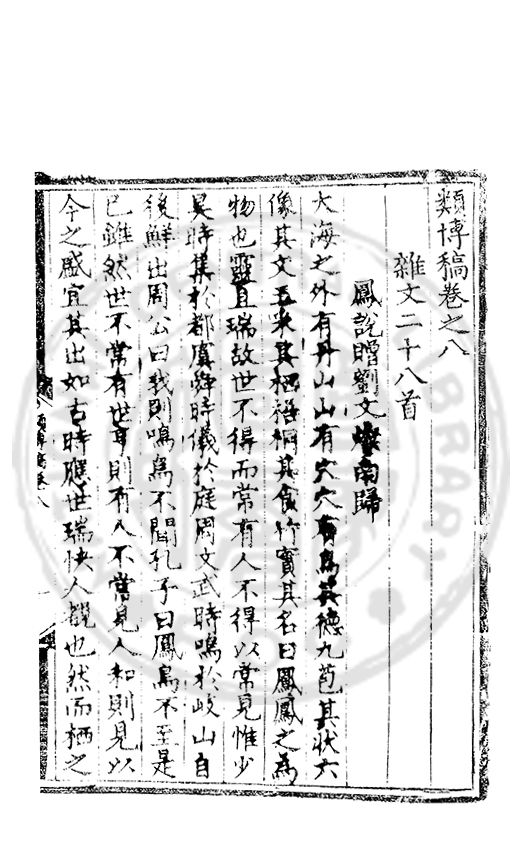 類博稿卷之八
雜文二十八首
鳳說贈劉文燦南歸
大海之外有丹山山有穴穴有鳥其德九苞其狀六
像其文五釆其棲梧桐其食竹實其名曰鳳鳳之為
物也靈且瑞故世不得而常有人不得以常見惟少
昊時集於都虞舜時儀於庭周文武時鳴於岐山自
後鮮出周公曰我則鳴鳥不聞孔子曰鳳鳥不至是
已雖然世不常有世平則有人不常見人和則見以
今之盛宜其出如古時應世瑞快人覩也然而栖之